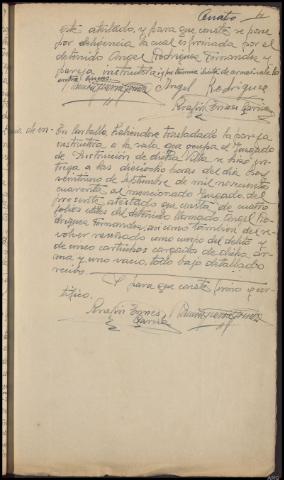 Cuatro
este atestado, y para que conste se pone
por diligencia la cual es firmada por el
detenido Angel Rodriguez Fernandez y
pareja instructora
Angel Rodriguez
Serafin Torres Garcia
En Carballo. Habiendose trasladado la pareja
instructora a la sala que ocupa el Juzgado
de Instrucción de dicha Villa se hizo en-
trega a las dieciocho horas del día hoy
veintiuno de Septiembre de mil novecientos
cuarenta al mencionado Juzgado del
presente atestado que consta de cuatro
folios utiles del detenido llamado Angel Ro-
driguez Fernandez, asi como tambien del re-
volver reseñado como cuerpo del delito y
de cinco cartuchos cargados de dicha ar-
ma y uno vacio, todo bajo detallado
recibo.
Y para que conste firmo y cer-
tifico.
Serafin Torres
Garcia